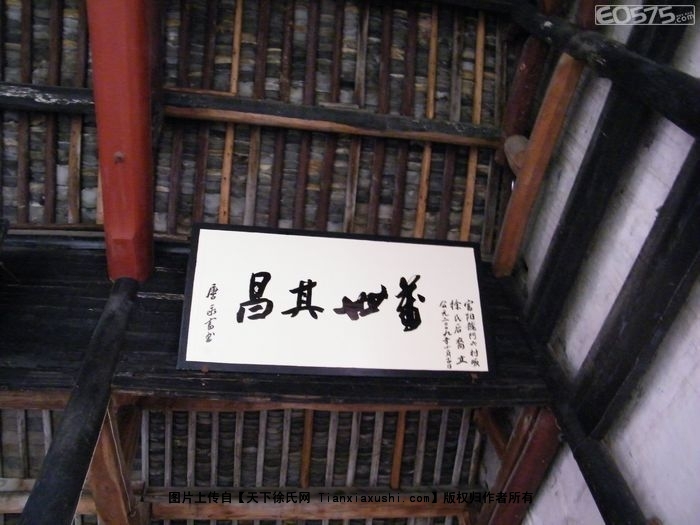 E0575.com
富阳龙门六村
徐氏后裔立
公元二〇〇九年十月
萬世其昌
图片上传自【天下徐氏网 Tianxiaxushi com】版权归作者所有